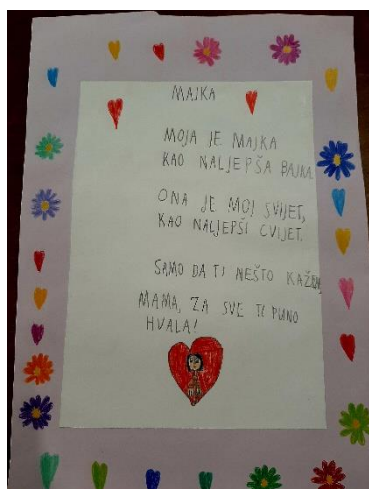 MAJKA
MOJA JE MAJKA
KAO NALJEPŠA BAJKA.
ONA JE MOJ SVIJET,
KAO NALJEPŠI CVIJET.
SAMO DA TI NEŠTO KAŽEM,
MAMA, ZA SVE TI PUNO
HVALA!